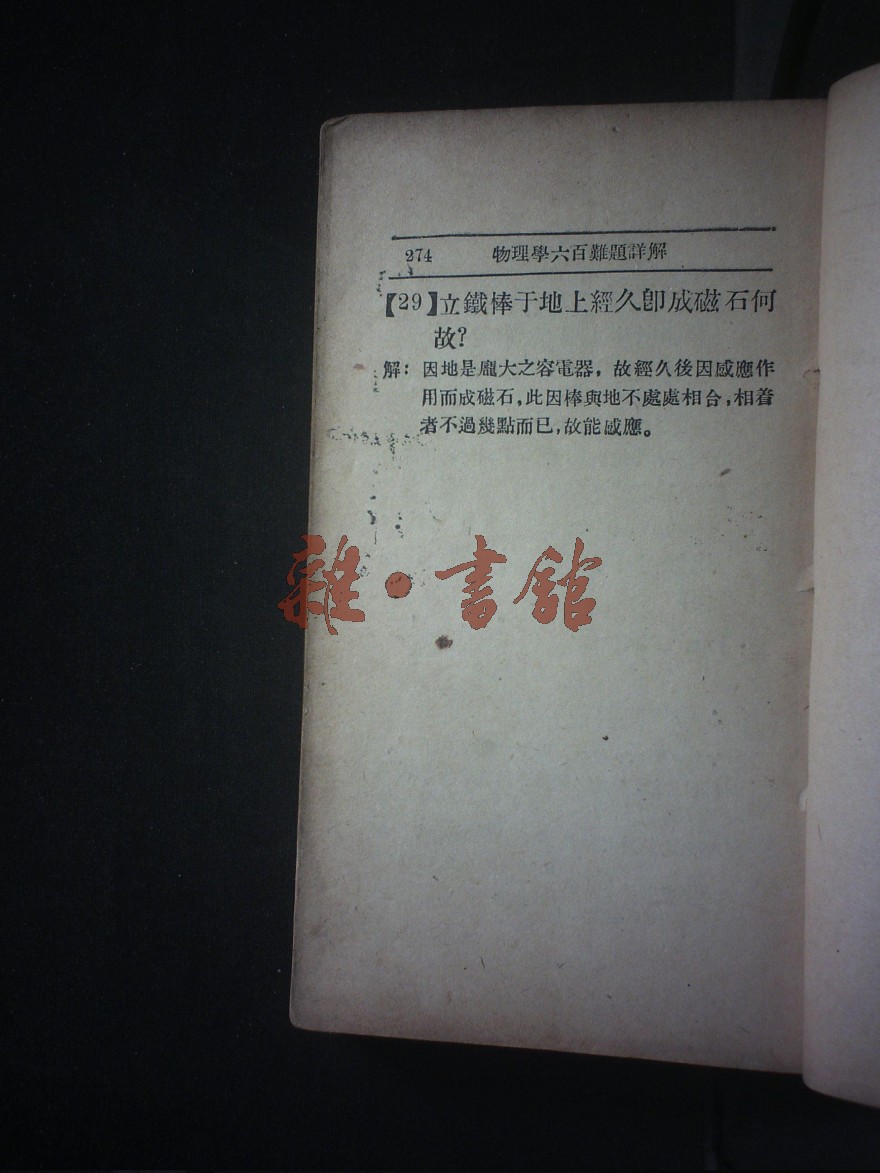 274 物理學六百難題詳解
【29】立鐵棒于地上經久卽成磁石何
故?
解: 因地是龐大之容電器，故經久後因感應作
用而成磁石，此因棒與地不處處相合，相着
者不過幾點而已，故能感應。
雜·書館